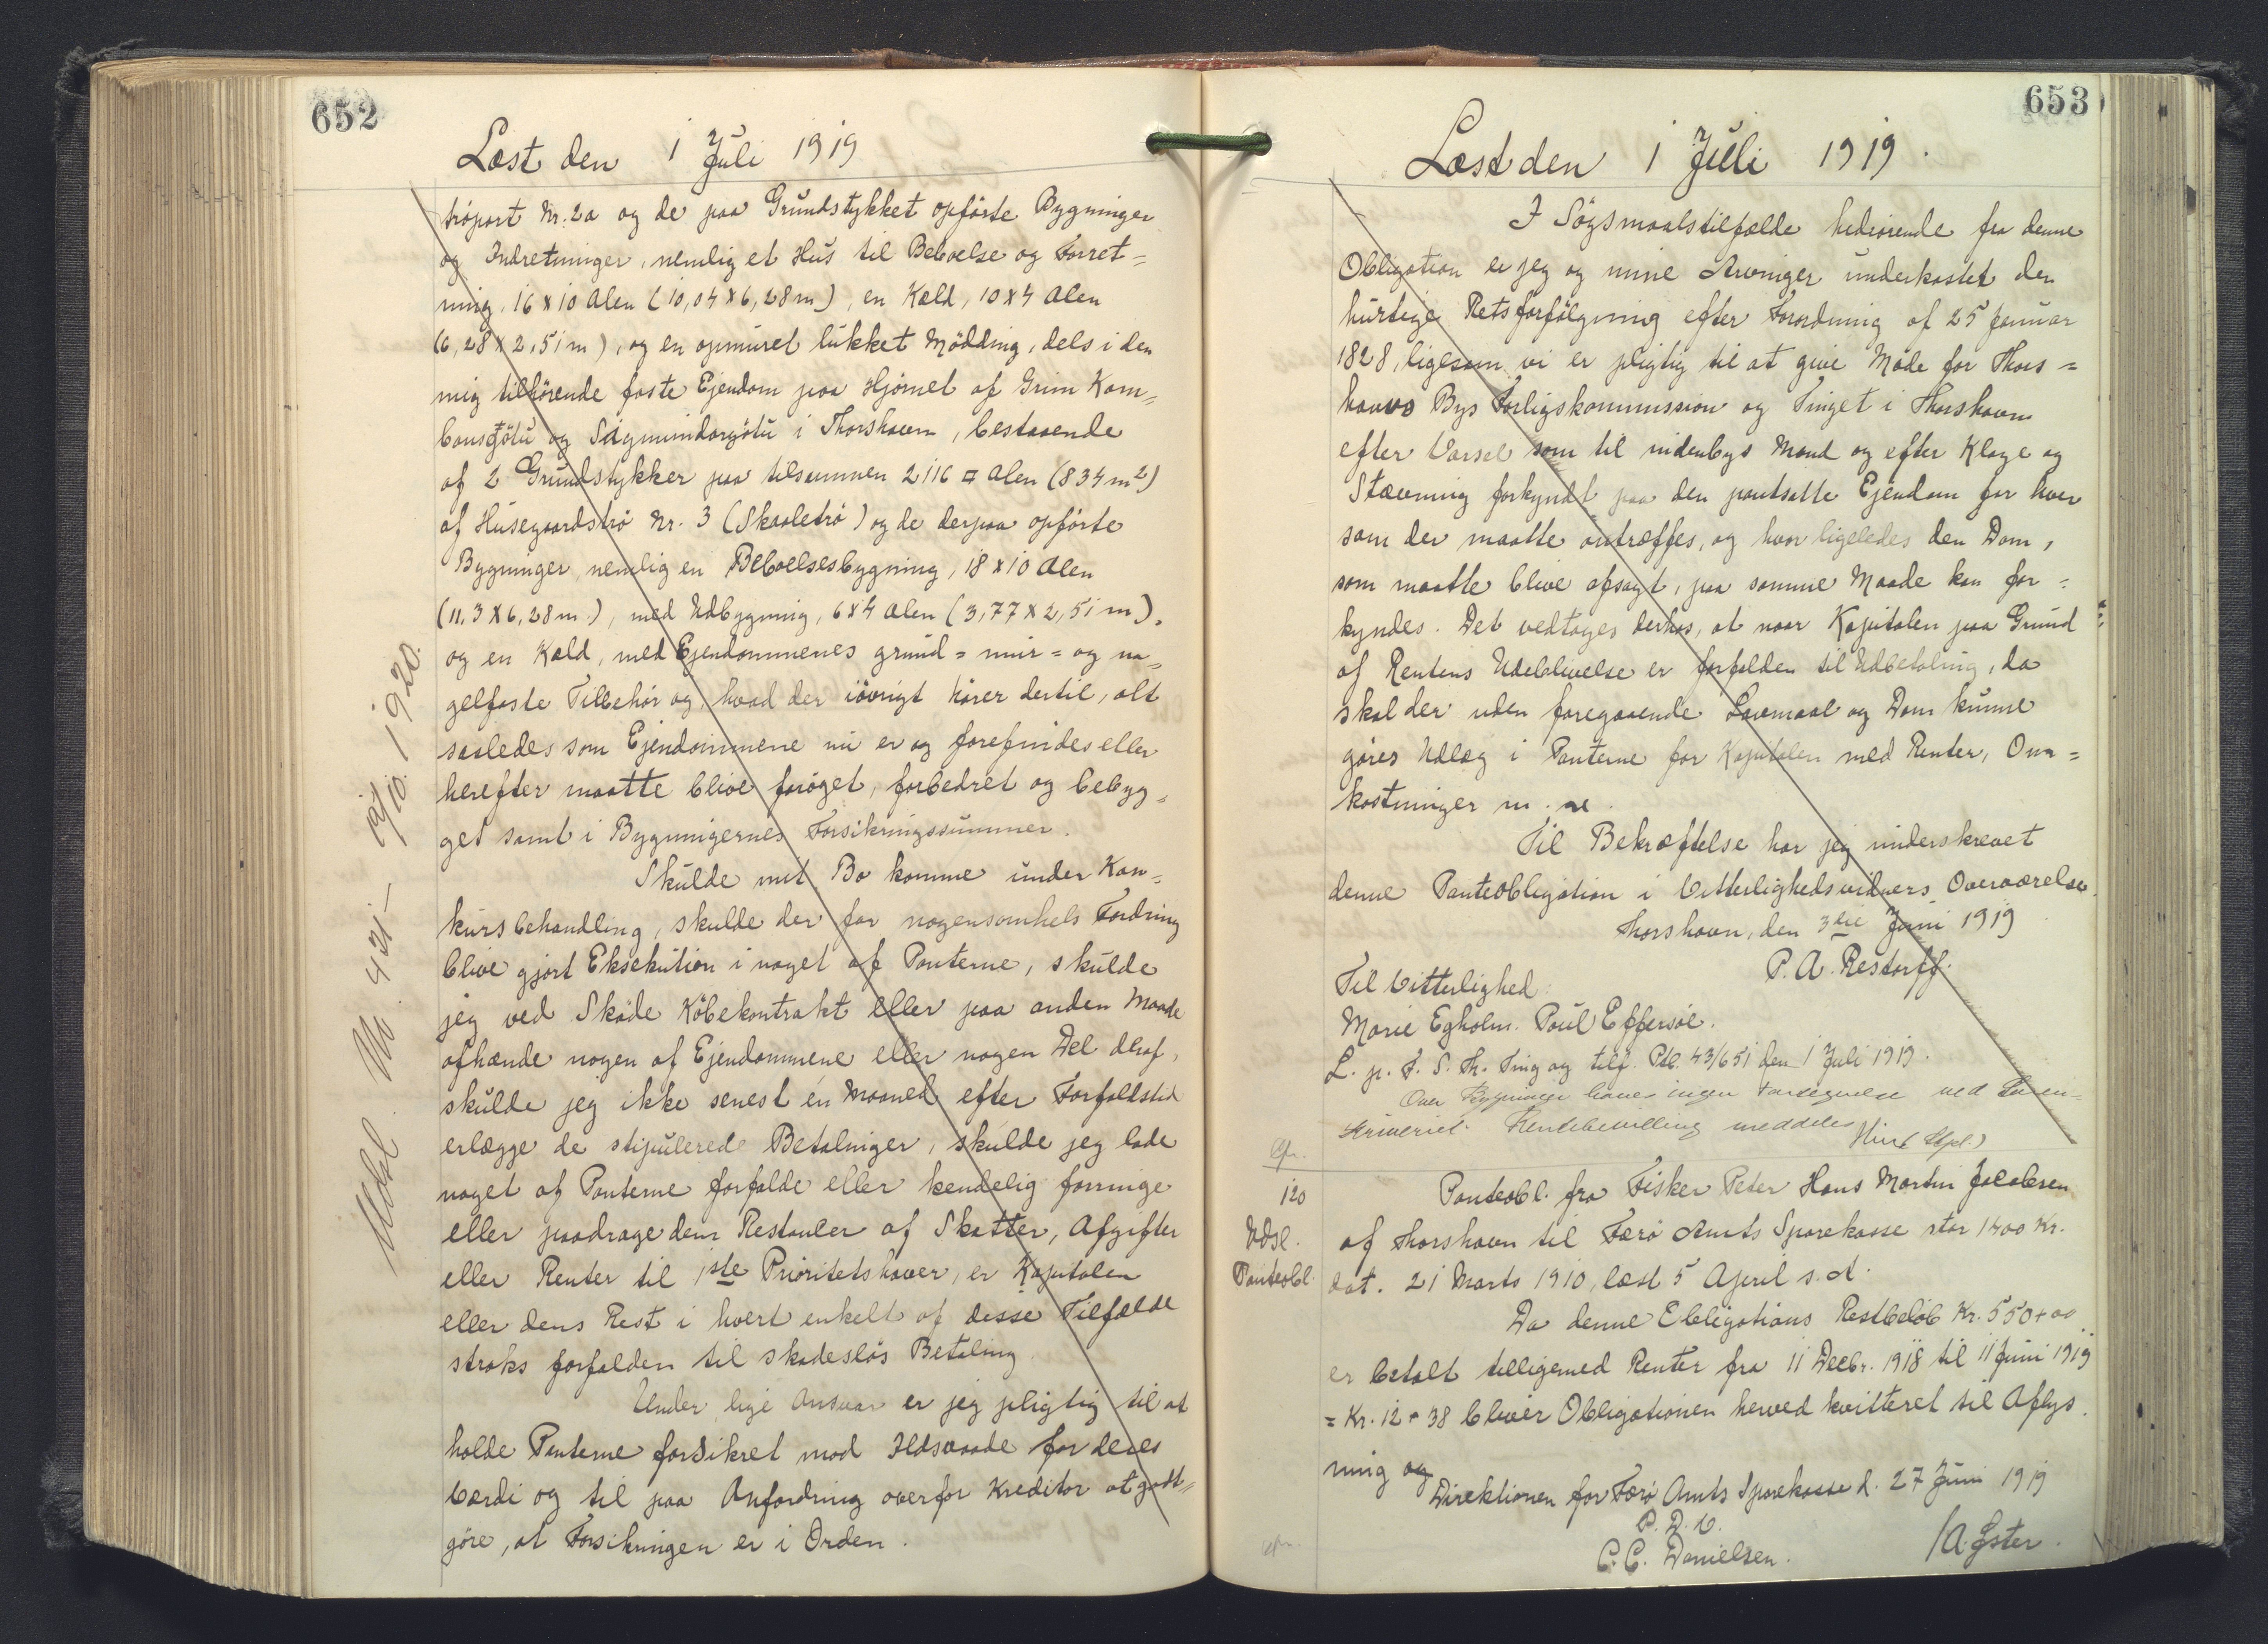 652
Læst den 1 Juli 1919
tröpart Nr. 2a og de paa Grundstykket opförte Bygninger
og Indretninger, nemlig et Hus til Beboelse og Forret=
ning, 16 x 10 Alen (10,04 x 6,28 m), en Kæld, 10 x 4 Alen
(6,28 x 2,51 m), og en opmuret lukket Mödding, dels i den
mig tilhörende faste Ejendom paa Hjörnet af Grim Kam=
bansgötu og Sigmundargötu i Thorshavn, bestaaende
af 2 Grundstykker paa tilsammen 2116 □ Alen (834 m²)
af Husegaardströ Nr. 3 (Skaaletrö) og de derpaa opförte
Bygninger, nemlig en Beboelsesbygning, 18 x 10 Alen
(11,3 x 6,28 m.), med Udbygning, 6 x 4 Alen (3,77 x 2,51 m).
og en Kæld, med Ejendommenes grund= mur= og na=
gelfaste Tilbehör og hvad der iövrigt hörer dertil, alt
saaledes som Ejendommene nu er og forefindes eller
herefter maatte blive foröget, forbedret og bebyg=
get samt i Bygningernes Forsikringssummer.
Skulde mit Bo komme under Kon=
kursbehandling, skulde der for nogensomhels Fordring
blive gjort Eksekution i noget af Panterne, skulde
jeg ved Sköde Köbekontrakt eller paa anden Maade
afhænde nogen af Ejendommene eller nogen Del deraf,
skulde jeg ikke senest én Maaned efter Forfaldstid
erlægge de stipulerede Betalinger, skulde jeg lade
noget af Panterne forfalde eller kendelig forringe
eller paadrage dem Restancer af Skatter, Afgifter
eller Renter til 1ste Prioritetshaver, er Kapitalen
eller dens Rest i hvert enkelt af disse Tilfælde
straks forfalden til skadeslös Betaling.
Under lige Ansvar er jeg pligtig til at
holde Panterne forsikret mod Ildsvaade for deres
Værdi og til paa Anfordring overfor Kreditor at godt=
göre, at Forsikringen er i Orden.
Udsl. Nr. 421 — 19/10 1920.
653
Læst den 1 Juli 1919.
I Sögsmaalstilfælde hedrörende fra denne
Obligation er jeg og mine Arvinger underkastet den
hurtige Retsforfölgning efter Forordning af 25 Januar
1828, ligesom vi er pligtig til at give Möde for Thors=
havns Bys Forligskommission og Tinget i Thorshavn
efter Varsel som til indenbys Mand og efter Klage og
Stævning forkyndt paa den pantsatte Ejendom for hver
som der maatte antræffes, og hvor ligeledes den Dom,
som maatte blive afsagt, paa samme Maade kan for=
kyndes. Det vedtages derhos, at naar Kapitalen paa Grund
af Rentens Udeblivelse er forfalden til Udbetaling, da
skal der uden foregaaende Lovmaal og Dom kunne
göres Udlæg i Panterne for Kapitalen med Renter, Om=
kostninger m. m.
Til Bekræftelse har jeg underskrevet
denne Panteobligation i Vitterlighedsvidners Overværelse.
Thorshavn, den 3die Juni 1919
P. A. Restorff.
Til Vitterlighed:
Marie Egholm. Poul Effersöe.
L. p. F. S. Th. Ting og tilf. Ptl. 43/651 den 1 Juli 1919.
Over Bygninger haves ingen Fortegnelse ved Soren=
skriveriet. Hentebevilling meddeles
cfr.
120
Udsl.
Panteobl.
Panteobl. fra Fisker Peter Hans Martin Jacobsen
af Thorshavn til Færö Amts Sparekasse stor 1400 Kr.
dat. 21 Marts 1910, læst 5 April s. A.
Da denne Obligations Restbelöb Kr. 550 + 00
er betalt tilligemed Renter fra 11 Decbr. 1918 til 11 Juni 1919
= Kr. 12 + 38 bliver Obligationen herved kvitteret til Aflys
ning og
Direktionen for Færö Amts Sparekasse d. 27 Juni 1919
P. D. V.
C. C. Danielsen. / A Öster.